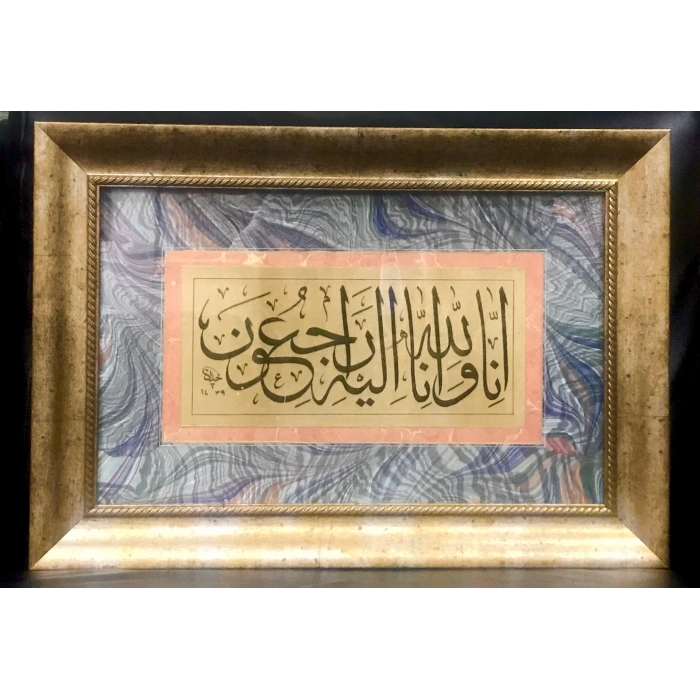 اِنَّا لِلّٰهِ وَاِنَّا اِلَيْهِ رَاجِعُونَ
١٤٣٩